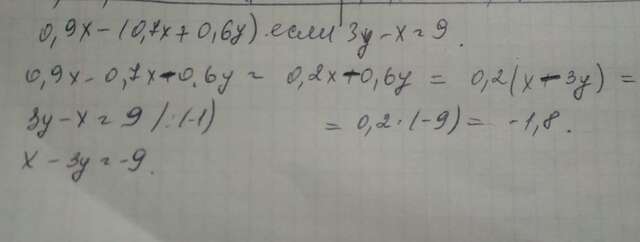 0,9x - (0,7x + 0,6y) если 3y - x = 9.
0,9x - 0,7x - 0,6y = 0,2x - 0,6y = 0,2(x - 3y) =
3y - x = 9 / :(-1) = 0,2·(-9) = -1,8.
x - 3y = -9.